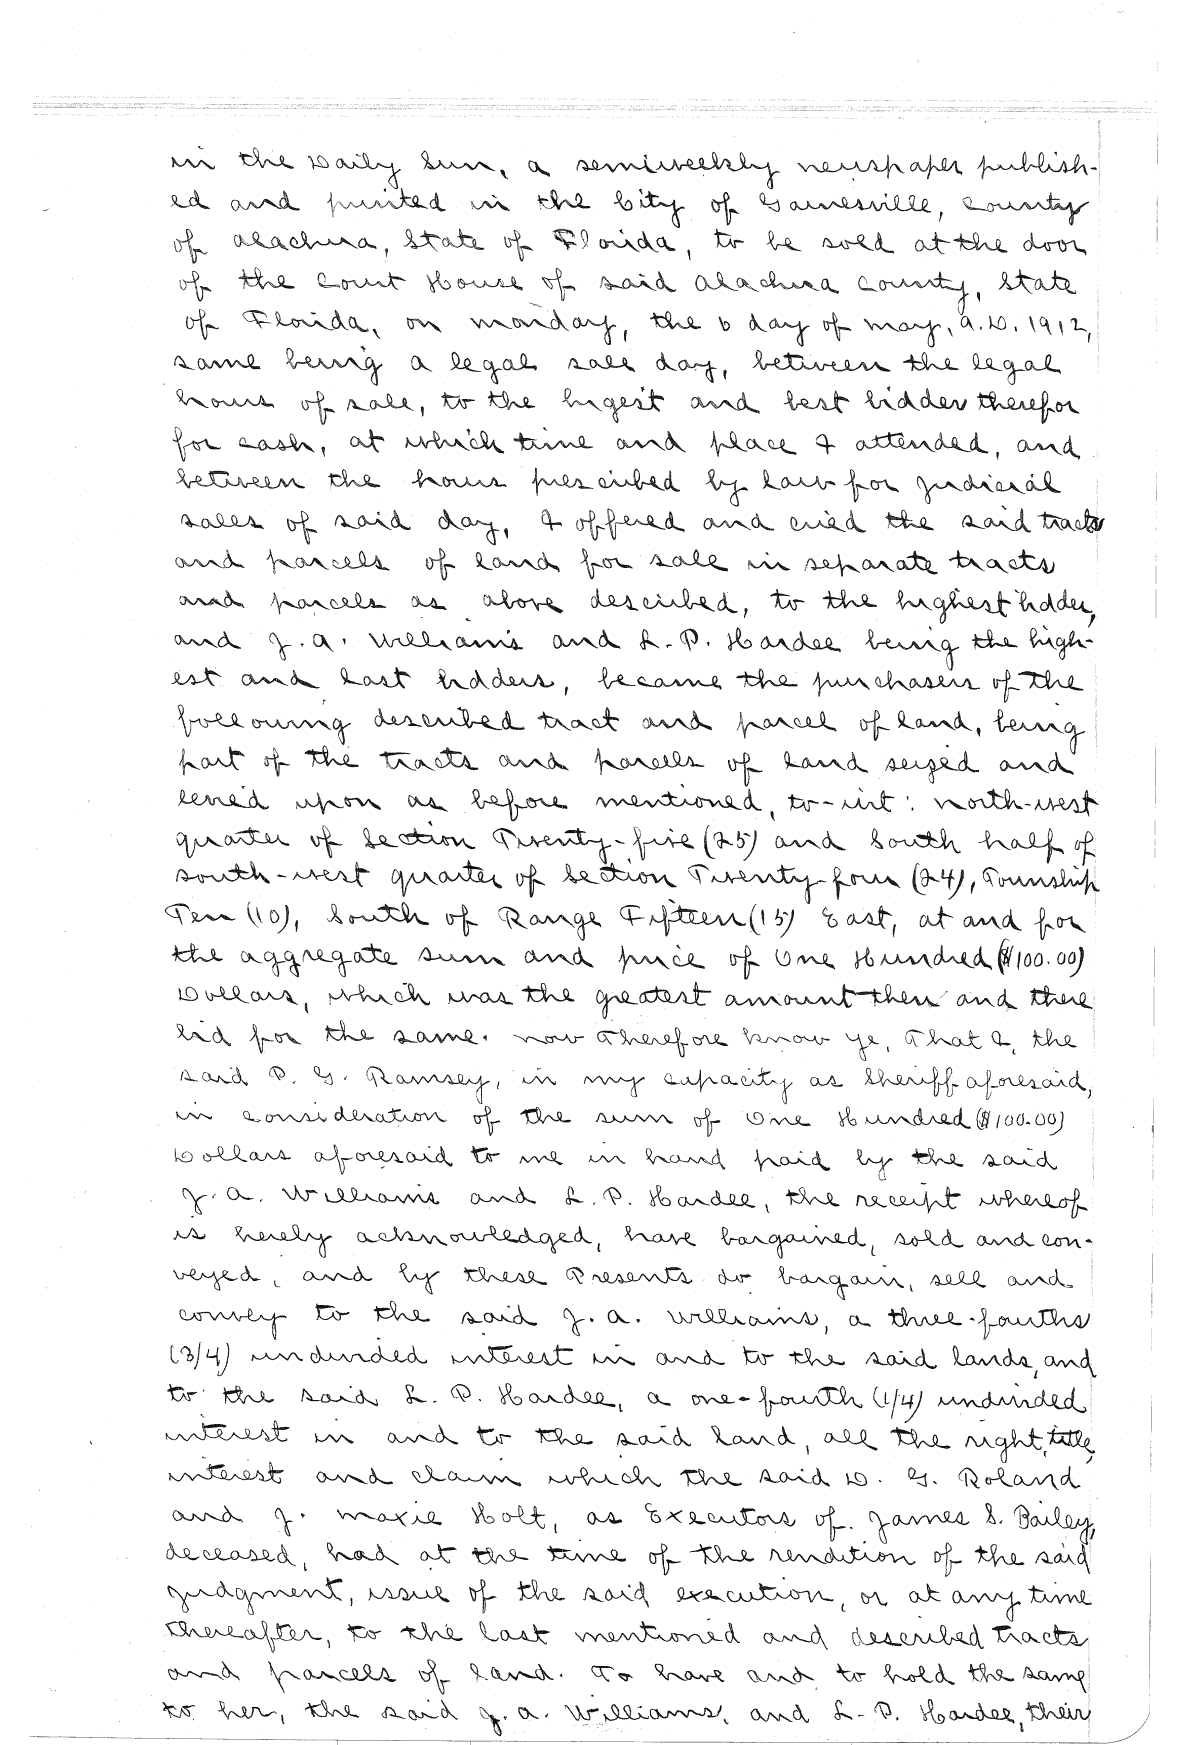 in the Daily Sun, a semiweekly newspaper publish-
ed and printed in the City of Gainesville, County
of Alachua, State of Florida, to be sold at the door
of the Court House of said Alachua County, State
of Florida, on Monday, the 6 day of May, A.D. 1912,
same being a legal sale day, between the legal
hours of sale, to the higest and best bidder therefor
for cash, at which time and place I attended, and
between the hours prescribed by law for judicial
sales of said day, I offered and cried the said tracts
and parcels of land for sale in separate tracts
and parcels as above described, to the highest bidder,
and J. A. Williams and L. P. Hardee being the high-
est and last bidders, became the purchasers of the
following described tract and parcel of land, being
part of the tracts and parcels of land seized and
levied upon as before mentioned, to-wit: North-west
quarter of Section Twenty-five (25) and South half of
south-west quarter of Section Twenty-four (24), Township
Ten (10), South of Range Fifteen (15) East, at and for
the aggregate sum and price of One Hundred ($100.00)
Dollars, which was the greatest amount then and there
bid for the same. Now Therefore know ye, That I, the
said P. G. Ramsey, in my capacity as Sheriff aforesaid,
in consideration of the sum of One Hundred ($100.00)
Dollars aforesaid to me in hand paid by the said
J. A. Williams and L. P. Hardee, the receipt whereof
is hereby acknowledged, have bargained, sold and con-
veyed, and by these Presents do bargain, sell and
convey to the said J. A. Williams, a three-fourths
(3/4) undivided interest in and to the said lands, and
to the said L. P. Hardee, a one-fourth (1/4) undivided
interest in and to the said land, all the right, title,
interest and claim which the said D. G. Roland
and J. Maxie Holt, as Executors of James S. Bailey,
deceased, had at the time of the rendition of the said
judgment, issue of the said execution, or at any time
thereafter, to the last mentioned and described tracts
and parcels of land. To have and to hold the same
to her, the said J. A. Williams, and L. P. Hardee, their